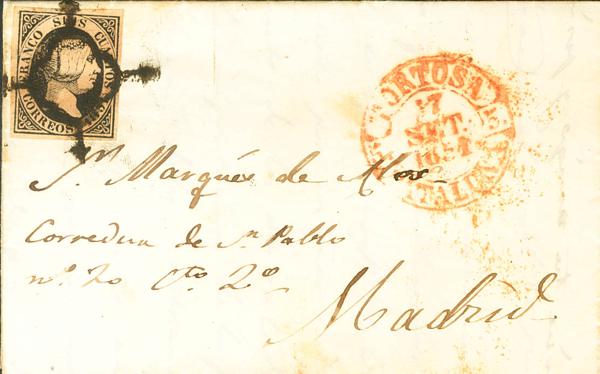 FRANCO SEIS CUARTOS
CORREOS 1851
TORTOSA
17
SET.
1851
CATALUÑA
Sr. Marqués de Alós
Corredera de Sn. Pablo
nº 20 Cto. 2º
Madrid